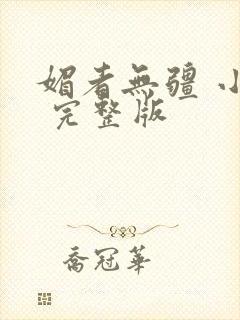 媚者無疆 小
完整版
喬冠華